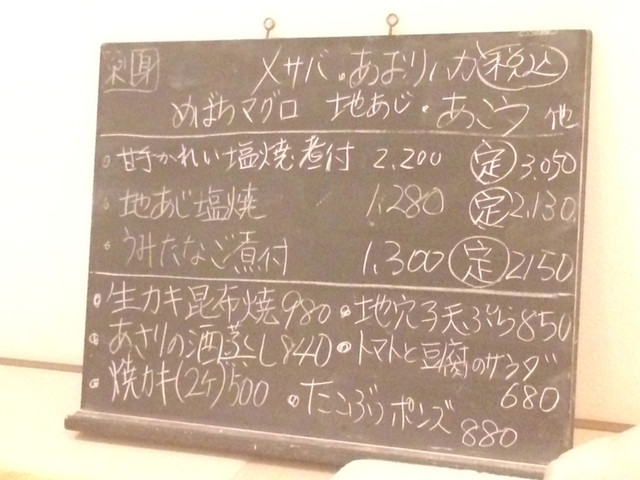 刺身 〆サバ・あおりいか 税込
めばちマグロ 地あじ・あこう 他
甘手かれい塩焼 煮付 2,200 定 3,050
地あじ塩焼 1,280 定 2,130
うみたなご煮付 1,300 定 2150
生カキ昆布焼 980
あさりの酒蒸し 840
焼カキ(2ケ) 500
地穴子天ぷら 850
トマトと豆腐のサラダ
680
たこぶつポンズ
880